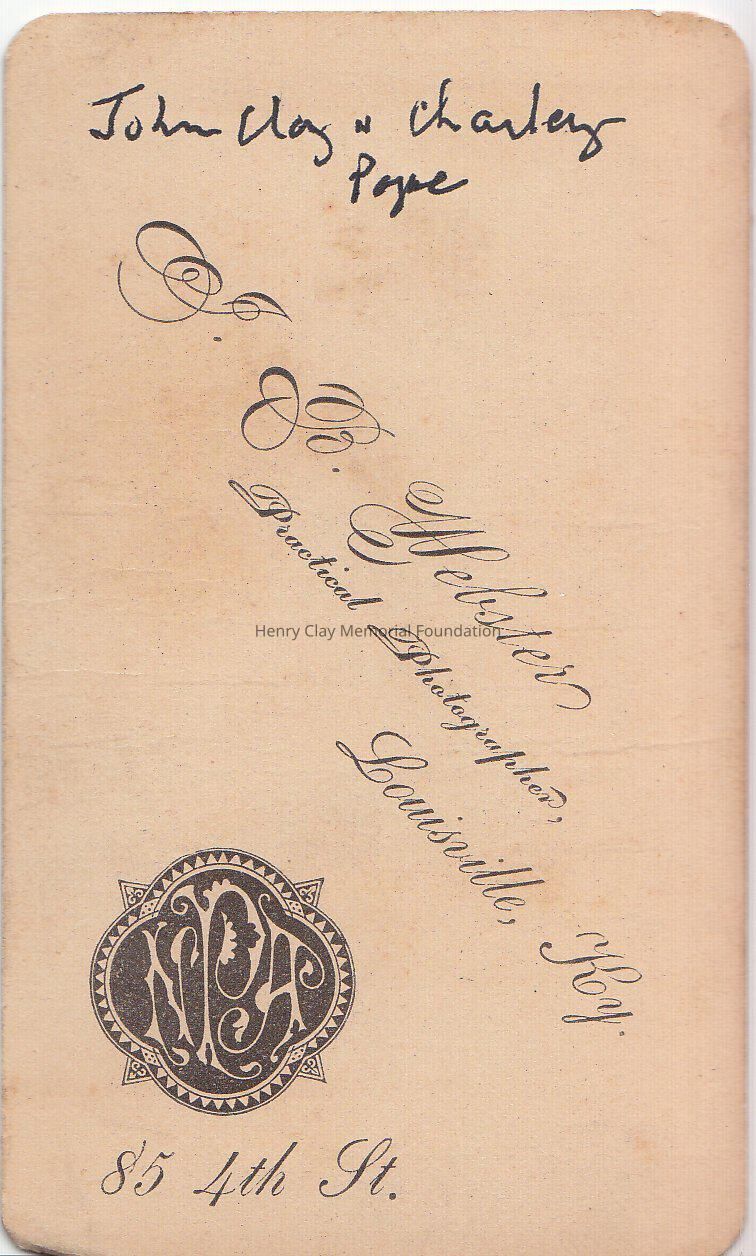 John Clay & Charley
Pope
I. B. Webster
Practical Photographer,
Henry Clay Memorial Foundation
Louisville, Ky.
NPA
85 4th St.